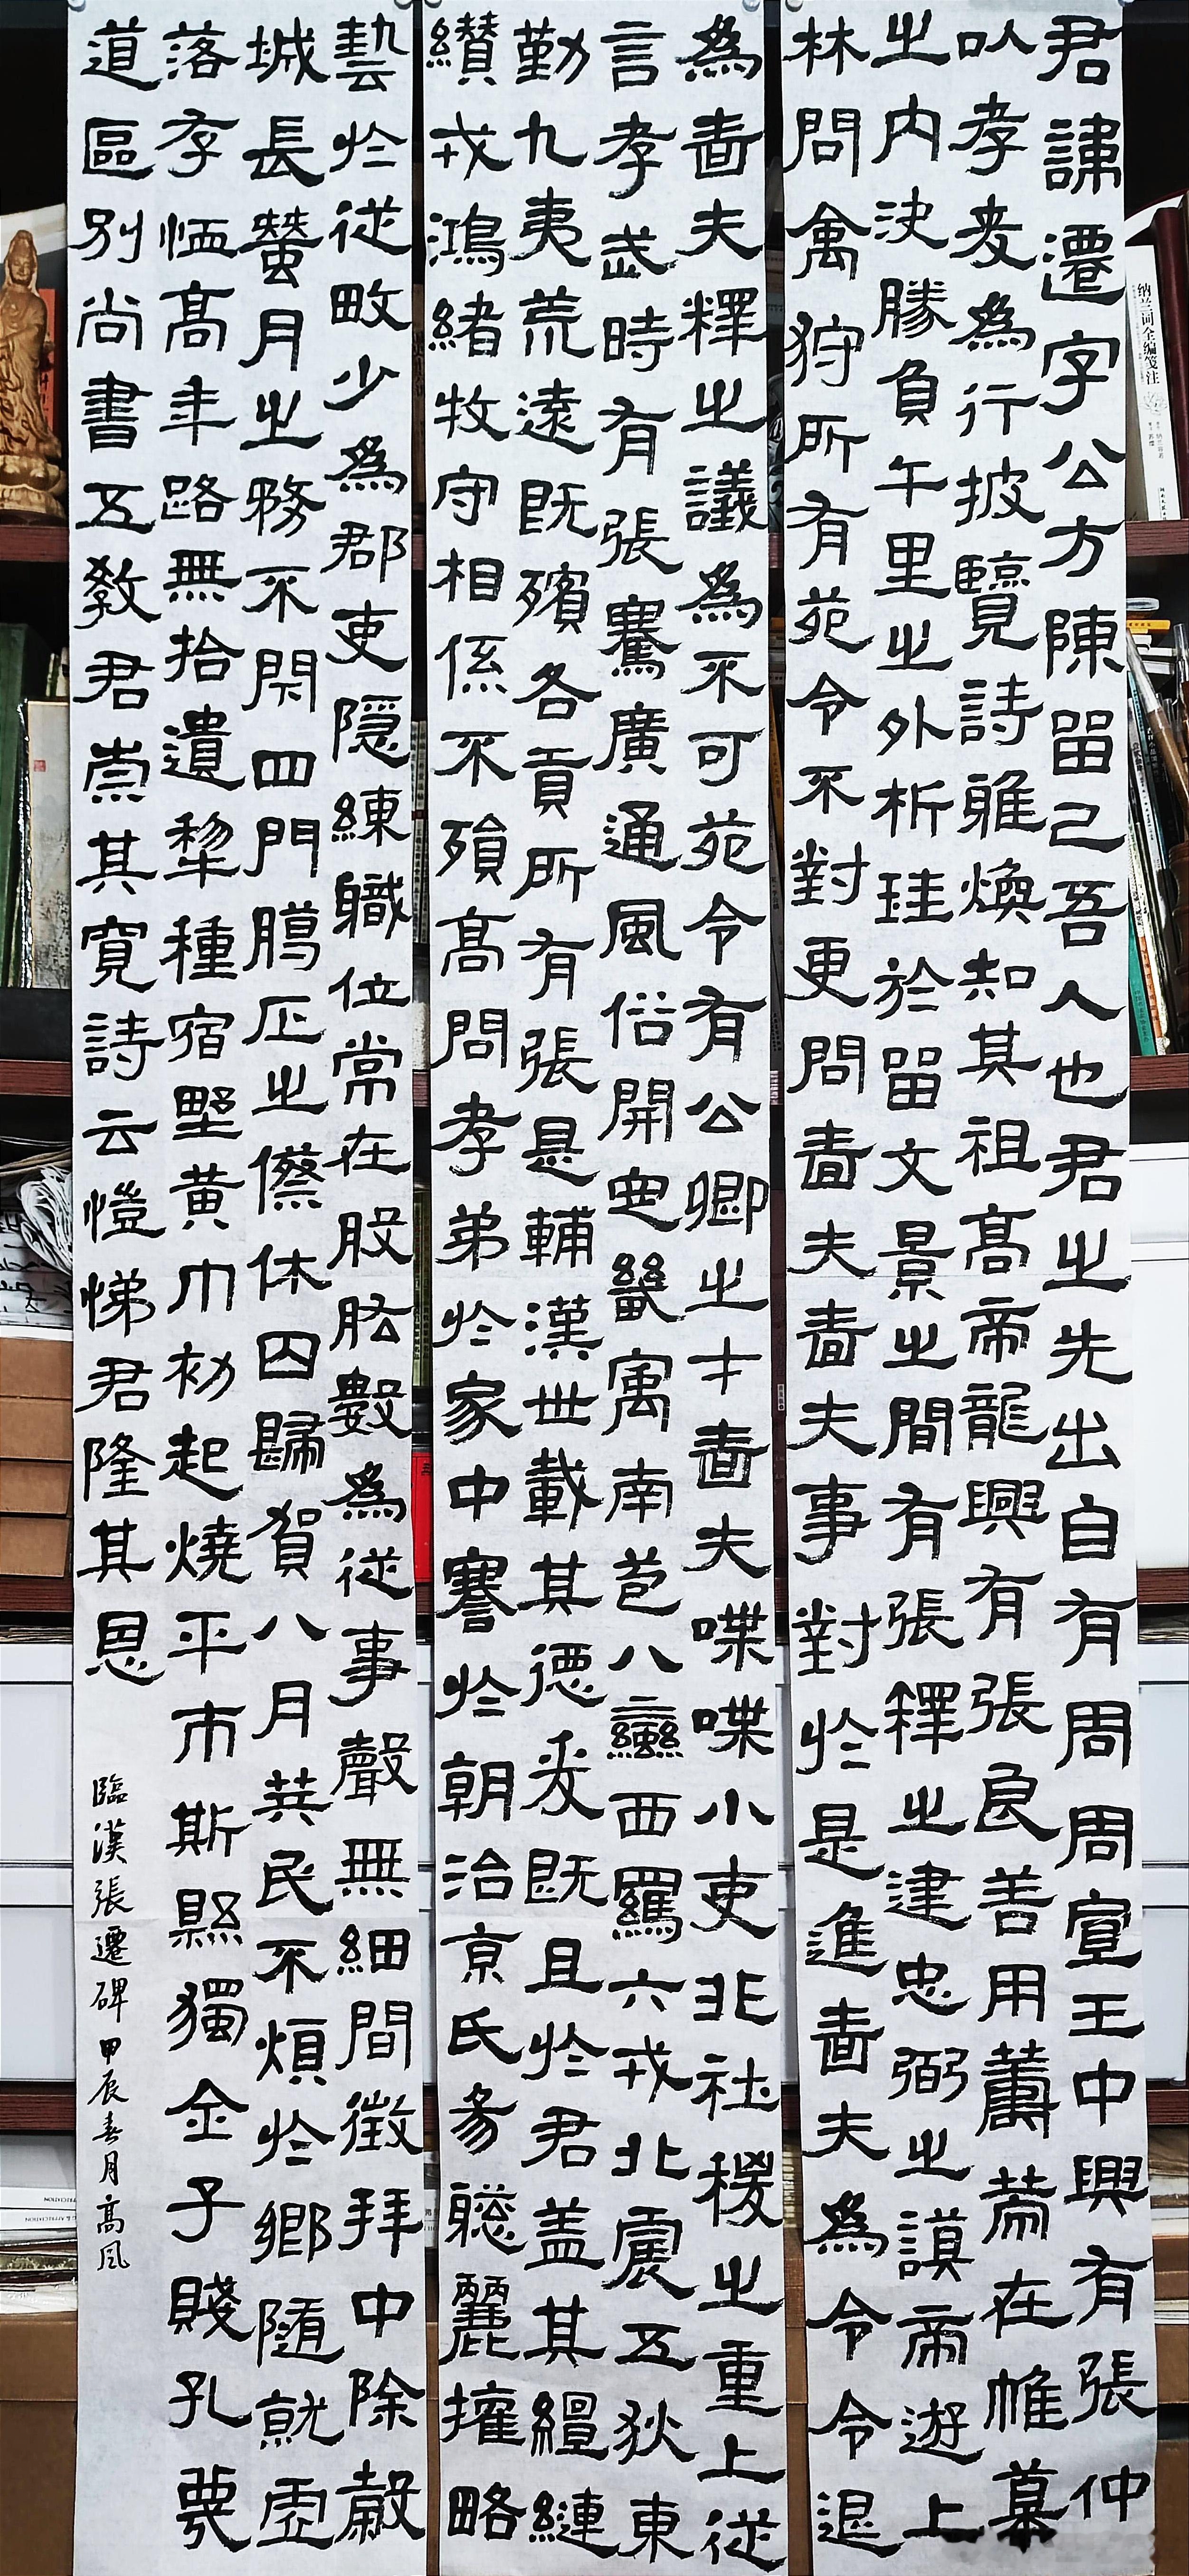 君諱遷字公方陳留己吾人也君之先出自有周周宣王中興有張仲
以孝友為行披覽詩雅煥知其祖高帝龍興有張良善用籌策在帷幕
之內決勝負千里之外析珪於留文景之間有張釋之建忠弼之謨帝遊上
林問禽狩所有苑令不對更問嗇夫嗇夫事對於是進嗇夫為令令退
為嗇夫釋之議為不可苑令有公卿之才嗇夫喋喋小吏非社稷之重上從
言孝武時有張騫廣通風俗開定畿寓南苞八蠻西羈六戎北震五狄東
勤九夷荒遠既殯各貢所有張是輔漢世載其德爰既且於君蓋其繵縺
纘戎鴻緒牧守相係不殞高問孝弟於家中謇於朝治京氏易聰麗權略
藝於從畋少為郡吏隱練職位常在股肱數為從事聲無細聞徵拜中除穀
城長蠶月之務不閉四門臘正之僚休囚歸賀八月筭民不煩於鄉隨就虛
落存恤高年路無拾遺犁種宿野黃巾初起燒平市斯縣獨全子賤孔蔑
道區別尚書五教君崇其寬詩云愷悌君隆其恩
臨漢張遷碑甲辰春月高風
纳兰词全编笺注